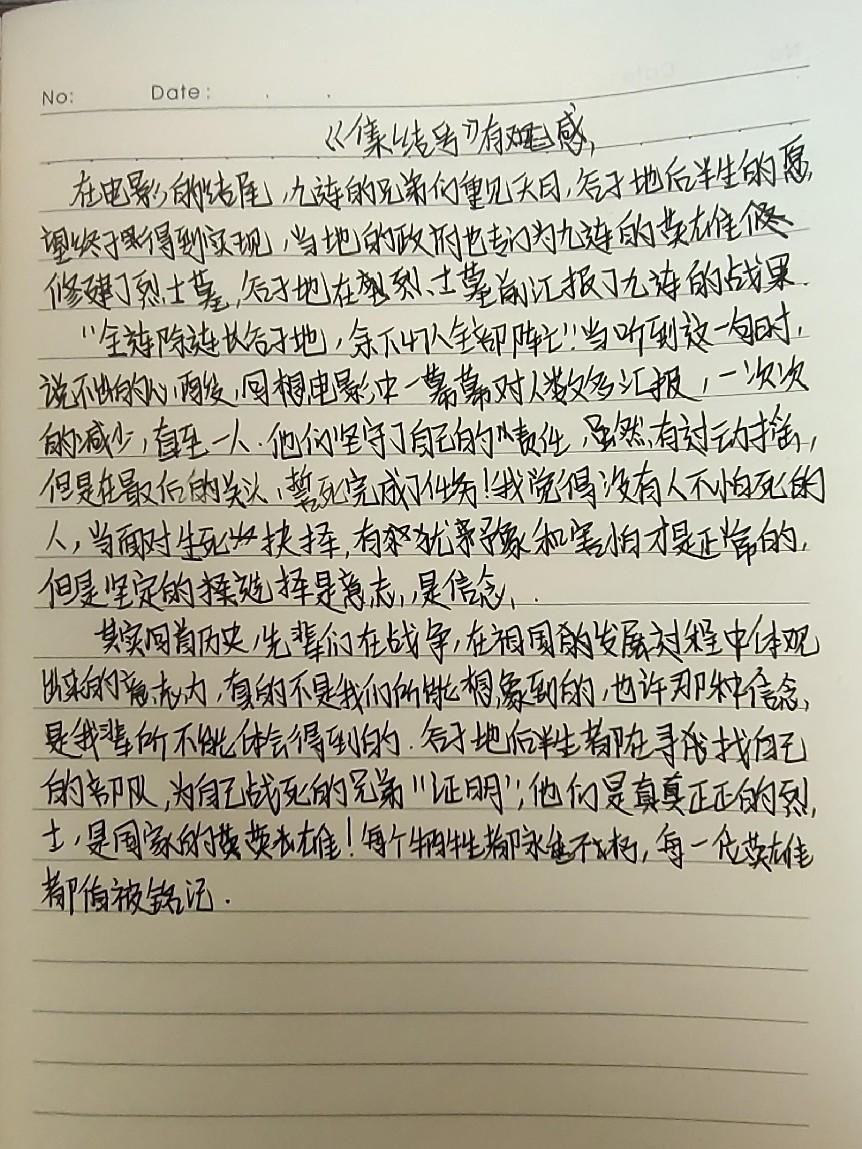 No: Date: . .
《集结号》有观感,
在电影的结尾,九连的兄弟们重见天日,谷子地后半生的愿
望终于得到实现,当地的政府也专门为九连的英雄修
修建了烈士墓,谷子地在烈士墓前汇报了九连的战果.
"全连除连长谷子地,余下47人全部阵亡"!当听到这一句时,
说不出的心酸,回想电影中一幕幕对人数多汇报,一次次
的减少,直至一人.他们坚守了自己的责任,虽然有过动摇,
但是在最后的关头,誓死完成了任务!我觉得没有人不怕死的
人,当面对生死抉择,有犹豫和害怕才是正常的,
但是坚定的选择是意志,是信念,.
其实回首历史,先辈们在战争,在祖国的发展过程中体现
出来的意志力,真的不是我们所能想象到的,也许那种信念,
是我辈所不能体会得到的.谷子地后半生都在寻找自己
的部队,为自己战死的兄弟"证明",他们是真真正正的烈
士,是国家的英雄!每个牺牲都永垂不朽,每一位英雄
都值被铭记.